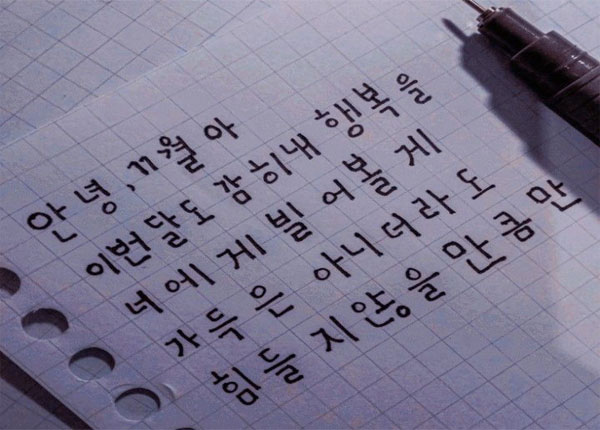 안녕, 11월아
이번달도 감히 내 행복을
너에게 빌어볼게
가득은 아니더라도
힘들지않을만큼만